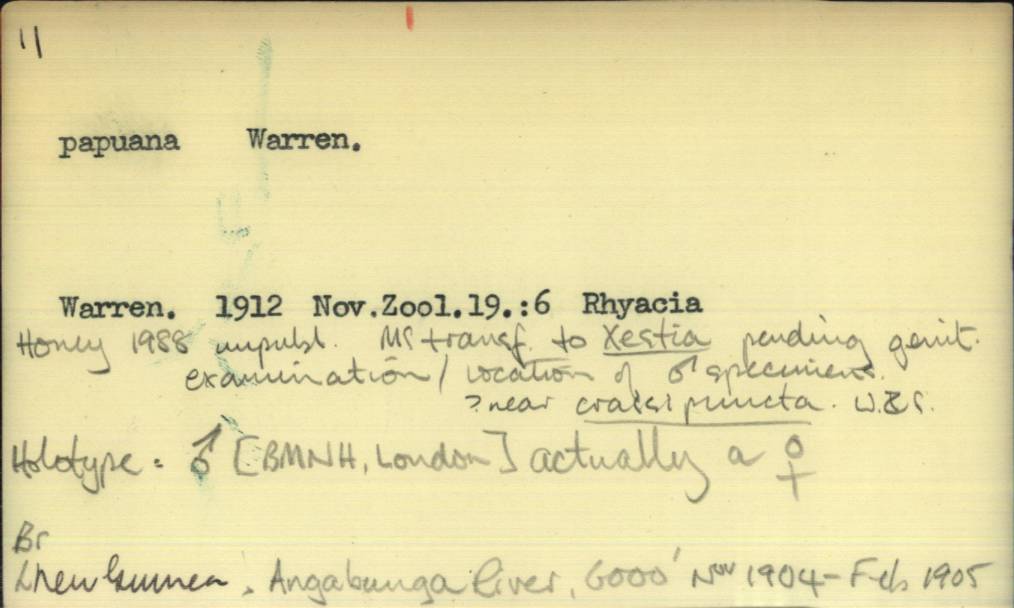 11
papuana Warren.
Warren. 1912 Nov.Zool.19.:6 Rhyacia
Honey 1988 unpubl. MS transf. to Xestia pending genit.
examination / location of ♂ specimens.
? near crassipuncta.
Holotype: ♂ [BMNH, London] actually a ♀
Br
New Guinea, Angabunga River, 6000' Nov 1904 - Feb 1905